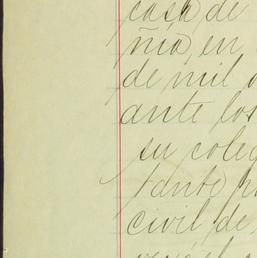 casa de
ñía, en
de mil
ante los
su coleg
tante p
civil de